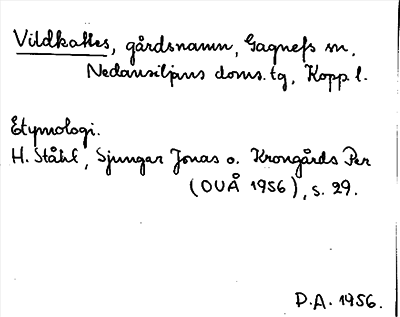 Vildkattes, gårdsnamn, Gagnefs sn,
Nedansiljans doms. tg, Kopp. l.
Etymologi.
H. Ståhl, Sjungar Jonas o. Krongårds Per
(OUÅ 1956), s. 29.
D.A. 1956.